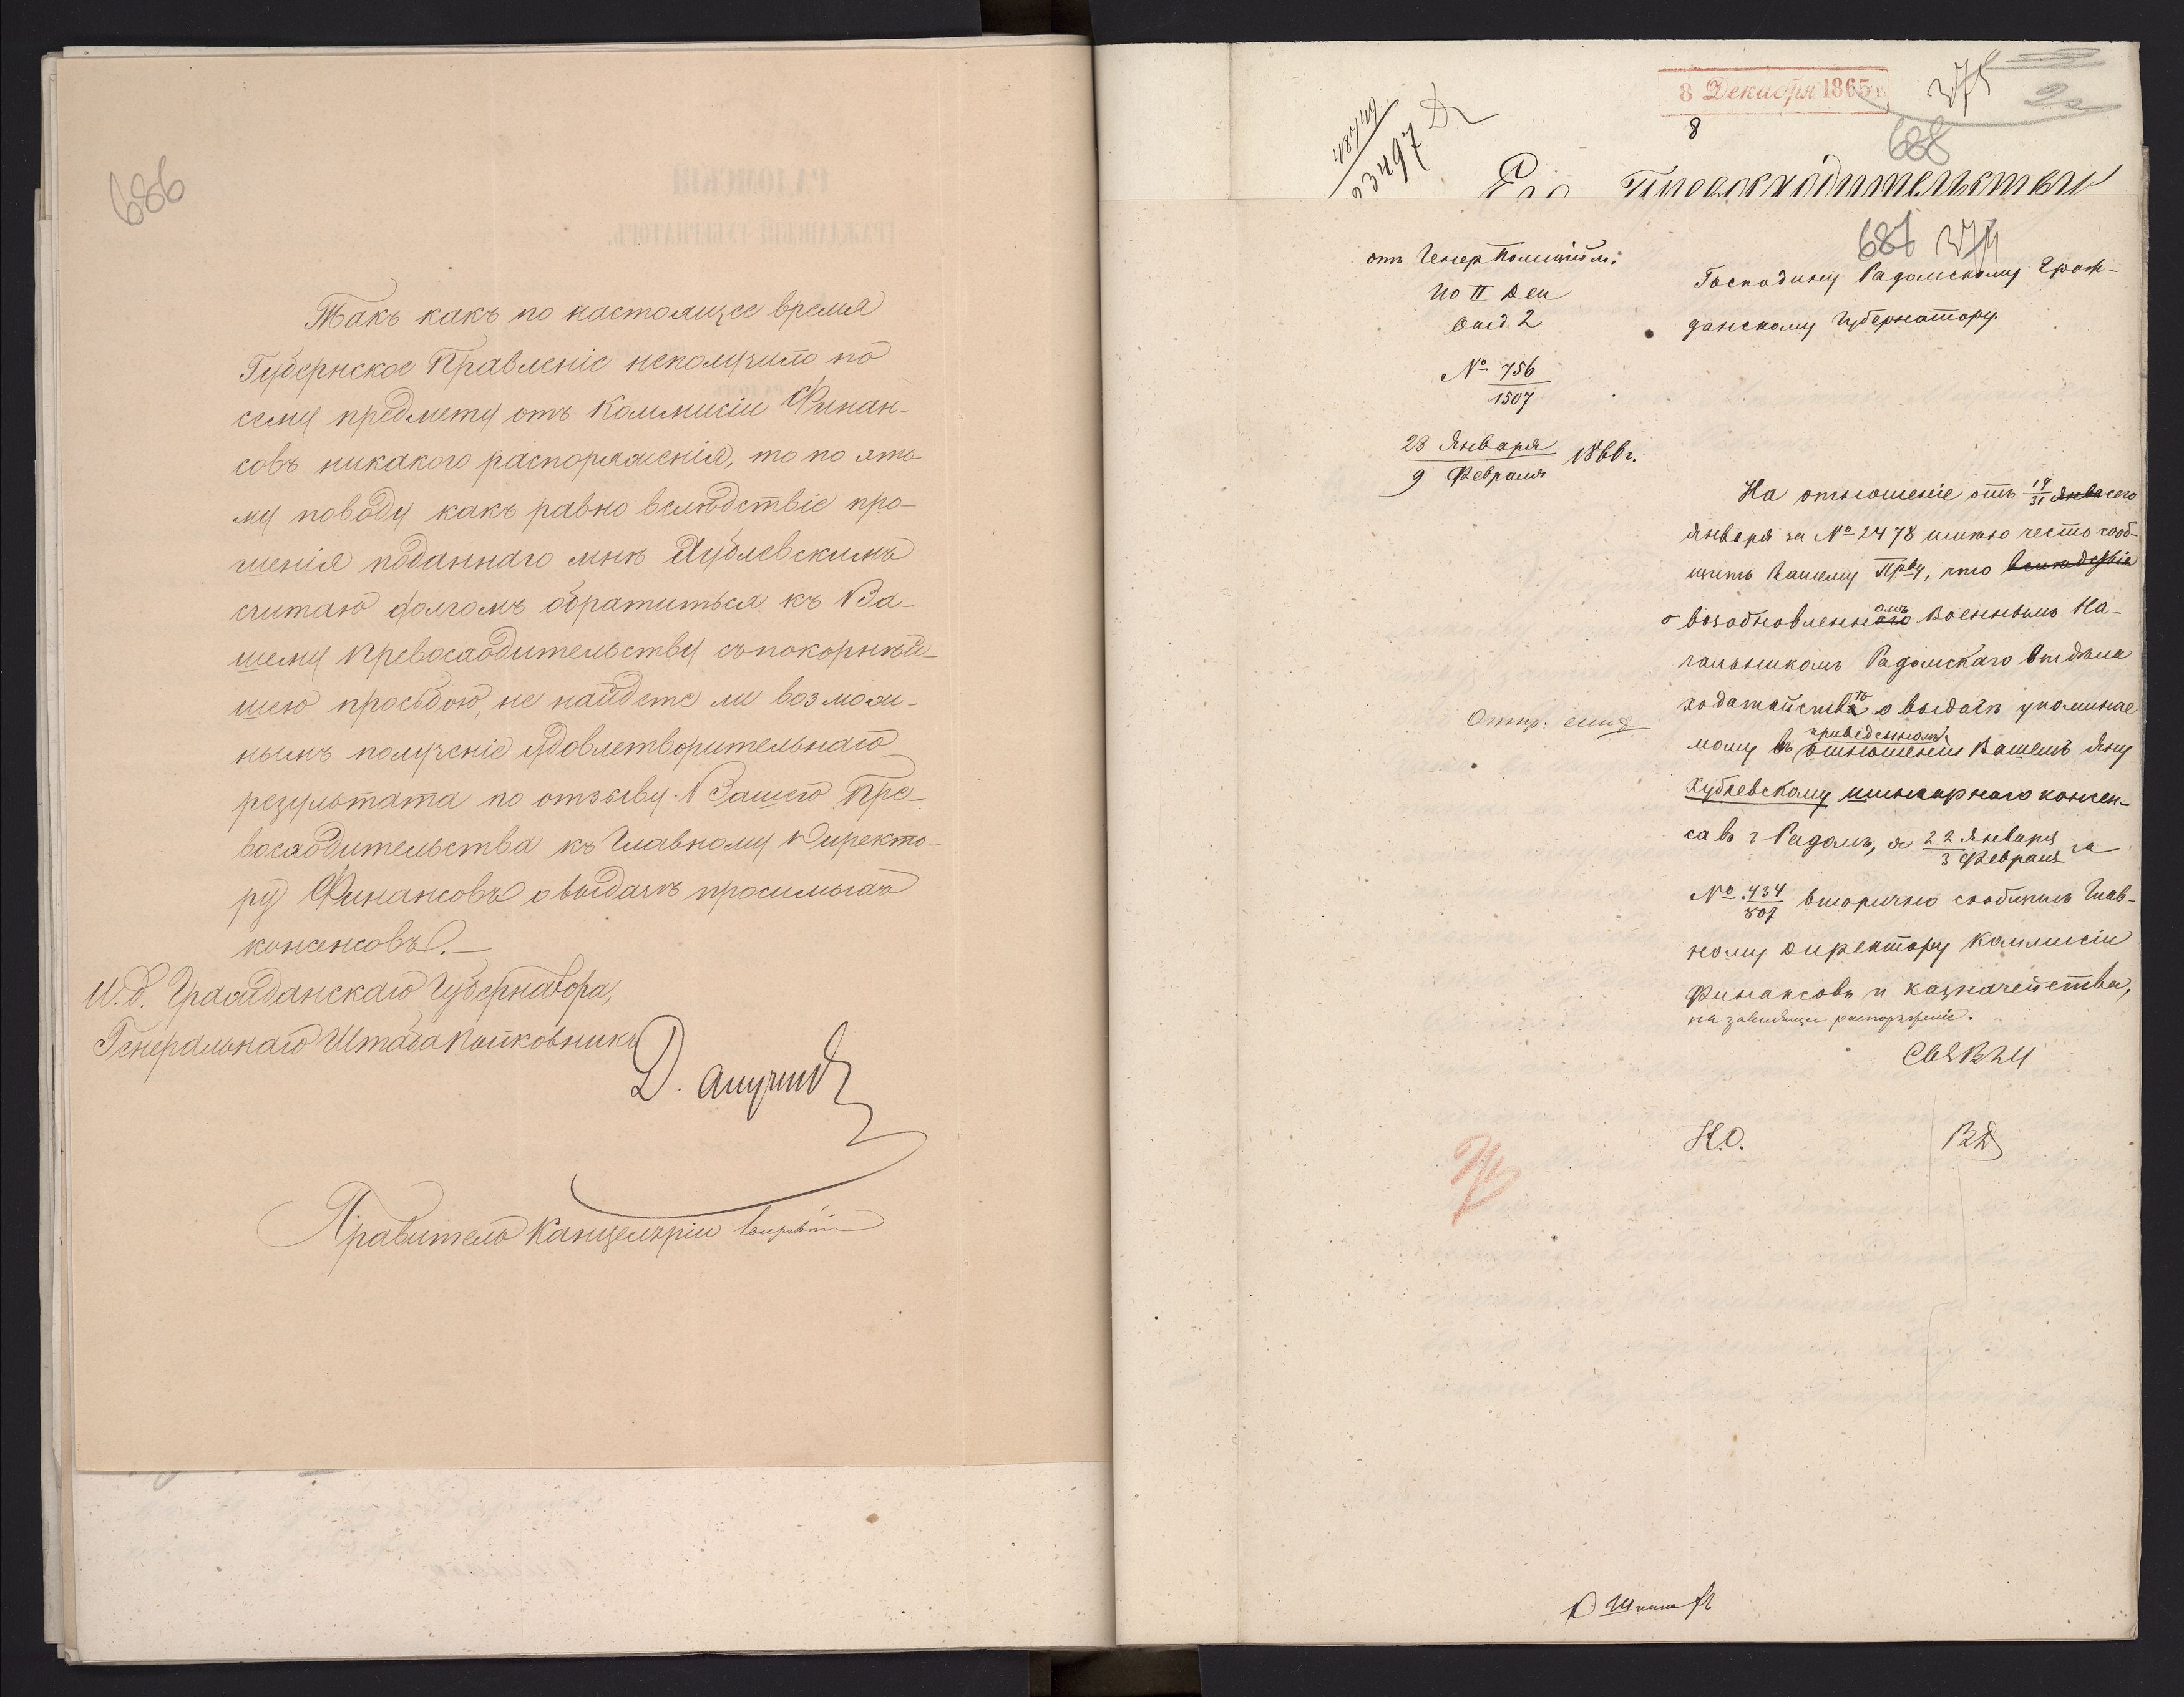 686
Такъ какъ по настоящее время
Губернское Правленіе неполучило по
сему предмету отъ Коммисіи Финан-
совъ никакого распоряженія, то по это-
му поводу какъ равно вслѣдствіе про-
шенія поданнаго мнѣ Хублевскимъ
считаю долгомъ обратиться къ Ва-
шему Превосходительству съ покорнѣй-
шею просьбою, не найдете ли возмож-
нымъ полученіе удовлетворительнаго
результата по отзыву Вашего Пре-
восходительства къ Главному Директо-
ру Финансовъ о выдачѣ просимыхъ
консенсовъ.
И. д. Гражданскаго Губернатора,
Генеральнаго Штаба Полковникъ
Д. Анучинъ
Правитель Канцеляріи
8 Декабря 1865 г.
375
8
688
48749
23497
Его Превосходительству
687 374
отъ Генер Полиційм:
По II Дел
Отд. 2
№ 756
1507
28 Января
9 Февраля 1866 г.
Господину Радомскому Граж-
данскому Губернатору.
На отношеніе отъ 19/31 Янва сего
Января за № 2478 имѣю честь сооб-
щить Вашему Прву, что вслѣдствіе
о возобновленномъ Военнымъ На-
чальникомъ Радомскаго Отдѣла
ходатайствѣ о выдачѣ упоминае
мому въ приведенномъ отношеніи Вашемъ Яну
Хублевскому шинкарнаго консен-
са въ г. Радомъ, я 22 Января/3 Февраля за
№ 434/807 вторично сообщилъ Глав-
ному Директору Коммисіи
Финансовъ и Казначейства,
на зависящее распоряженіе.
Н.О.
ВД